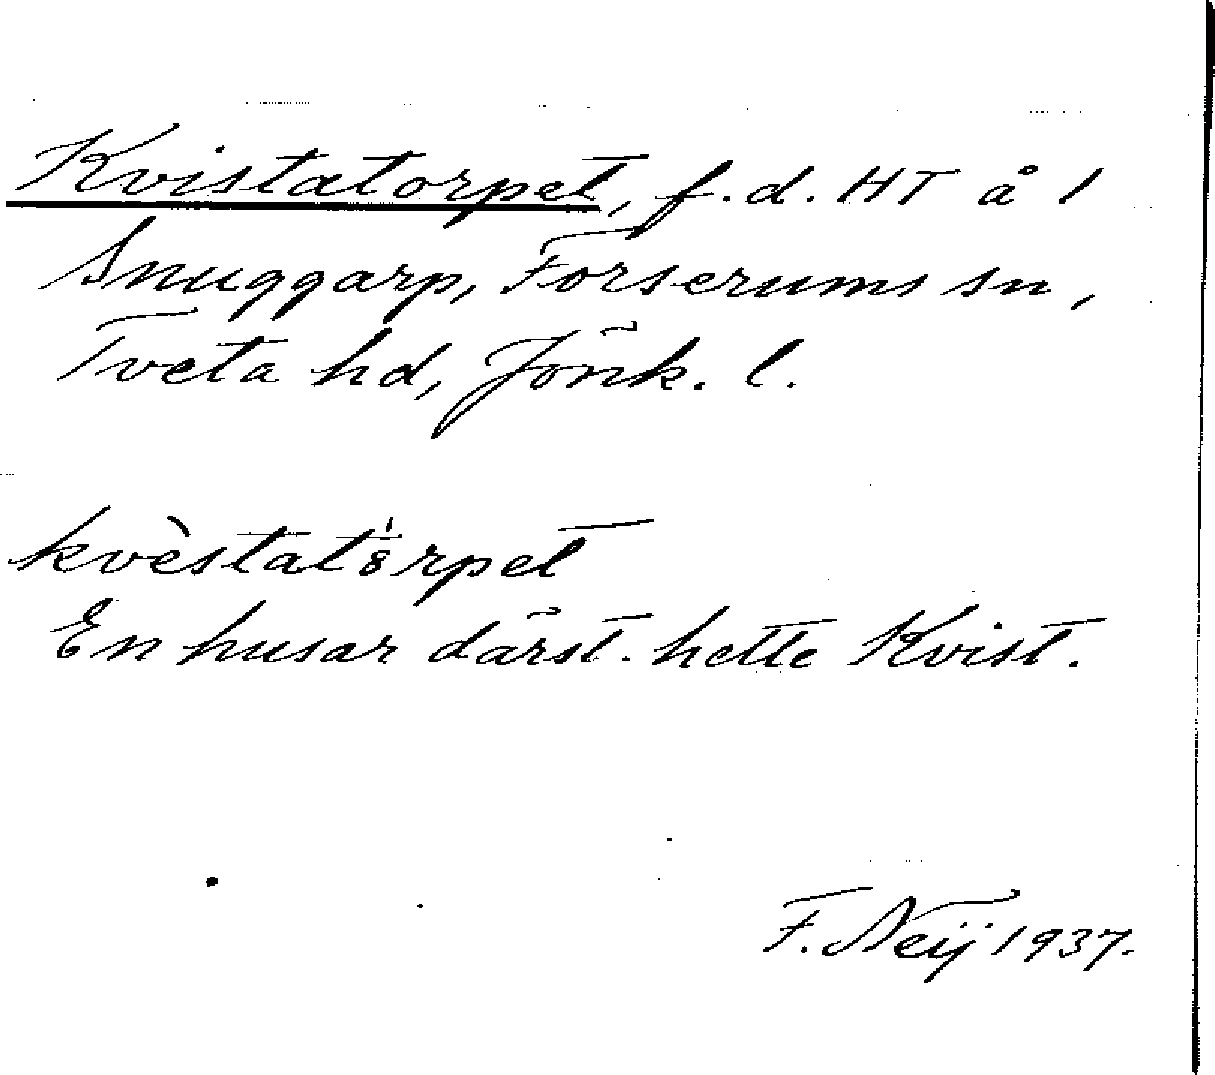 Kvistatorpet, f.d. HT å 1
Snuggarp, Forserums sn,
Tveta hd, Jönk. l.
kvèstatö̀rpet
En husar därst. hette Kvist.
F. Neij 1937.